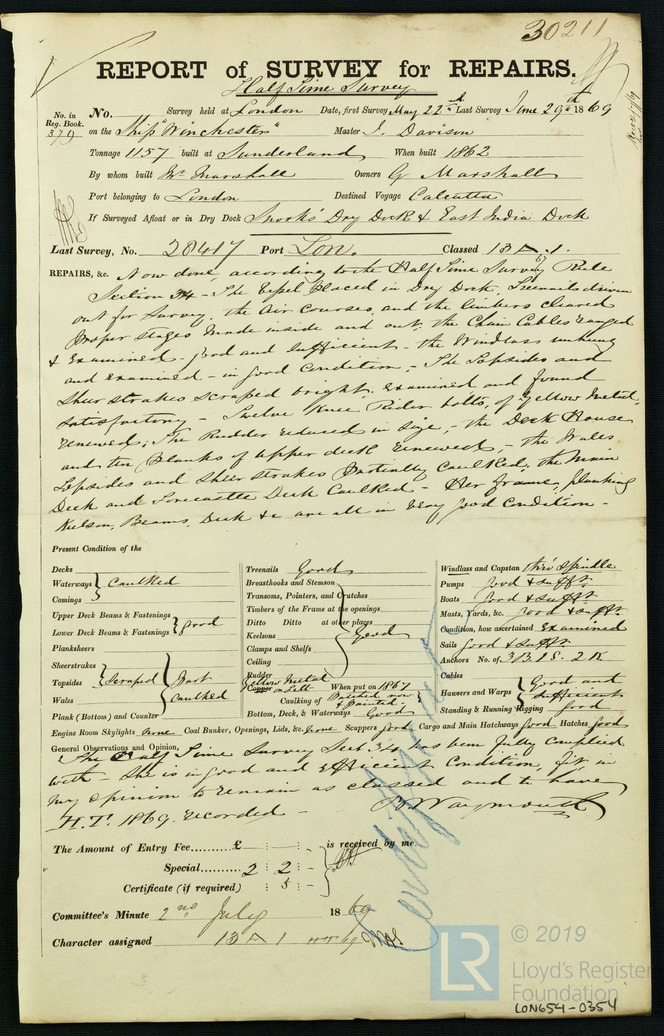 30211
REPORT of SURVEY for REPAIRS.
Half Time Survey
No. in Reg. Book. 379
No. Survey held at London Date, first Survey May 22nd Last Survey June 29th 1869
on the Ship "Winchester" Master J. Davison
Tonnage 1157 built at Sunderland When built 1862
By whom built Mr Marshall Owners G Marshall
Port belonging to London Destined Voyage Calcutta
If Surveyed Afloat or in Dry Dock Snooks' Dry Dock & East India Dock
Last Survey, No. 28417 Port Lon. Classed 13 A 1.
67
REPAIRS, &c. Now done according to the Half Time Survey Rule
Section 34 - The Vessel placed in Dry Dock, Treenails driven
out for Survey, the Air Courses, and the limbers cleared
Proper stages made inside and out, the Chain Cables ranged
& Examined - good and sufficient - the Windlass unhung
and examined - in good condition - The Topsides and
Sheerstrakes scraped bright. Examined and found
satisfactory - Twelve Knee Rider bolts, of Yellow Metal,
renewed; The Rudder reduced in size, - the Deck House
and ten Planks of upper deck renewed, - the Wales
Topsides and Sheer Strakes Partially Caulked, the Main
Deck and Forecastle Deck Caulked - Her frame, planking
Kelson, Beams, Deck &c are all in very good Condition -
Present Condition of the
Decks
Waterways } Caulked
Comings
Upper Deck Beams & Fastenings
Lower Deck Beams & Fastenings } good
Planksheers
Sheerstrakes
Topsides } Scraped } Part
Wales Caulked
Plank (Bottom) and Counter
Treenails Good
Breasthooks and Stemson
Transoms, Pointers, and Crutches
Timbers of the Frame at the openings
Ditto Ditto at other places
Keelsons } Good
Clamps and Shelfs
Ceiling
Rudder
Yellow Metal
Copper on Felt When put on 1867
Caulking of
Bottom, Deck, & Waterways Good
Windlass and Capstan
Pumps Good & Sufft.
Boats Good & Sufft.
Masts, Yards, &c. Good & Sufft.
Condition, how ascertained Examined
Sails good & Sufft.
Anchors No. of 3 B. 1 S. 2 K
Cables
Hawsers and Warps } Good and sufficient
Standing & Running Rigging good
Engine Room Skylights None Coal Bunker, Openings, Lids, &c. None Scuppers Good Cargo and Main Hatchways Good Hatches Good
General Observations and Opinion, The Half Time Survey Sect. 34 has been fully complied
with - She is in good and efficient Condition, fit, in
my opinion to remain as classed and to have
H.T. 1869. recorded - B Waymouth
The Amount of Entry Fee ... £ : : - is received by me.
Special ... 2 : 2 : -
Certificate (if required) : 5 : -
Committee's Minute 2nd July 1869
Character assigned 13 A 1 HT 69
LR
© 2019
Lloyd's Register
Foundation
LON654-0354